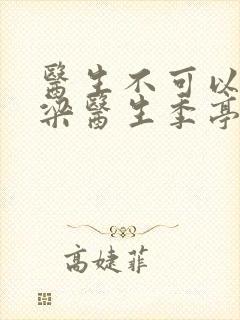 醫生不可以
梁醫生季亭
高婕菲